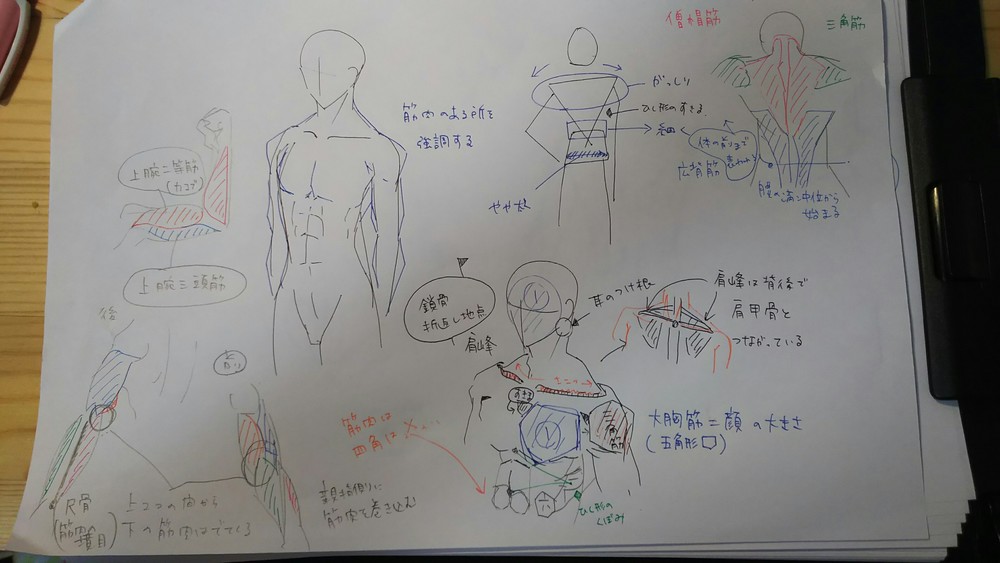 僧帽筋
三角筋
筋肉のある所を
強調する
がっしり
ひし形のすきま
広背筋
やや太
腰の溝 中位から
始まる
上腕二等筋
(力コブ)
上腕三頭筋
後
前
鎖骨
折返し地点
肩峰
耳のつけ根
肩峰は背後で
肩甲骨と
つながっている
すきま
筋肉は
四角は×…
大胸筋=顔の大きさ
(五角形)
六
ひし形の
くぼみ
尺骨
筋肉の
境目
下の筋肉はでてくる
筋肉を巻き込む